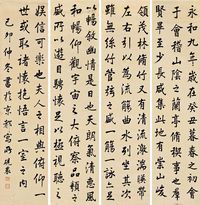 永和九年歲在癸丑暮春之初會
于會稽山陰之蘭亭脩稧事也羣
賢畢至少長咸集此地有崇山峻
領茂林脩竹又有清流激湍暎帶
左右引以為流觴曲水列坐其次
雖無絲竹管弦之盛一觴一詠亦足
以暢敘幽情是日也天朗氣清惠風
和暢仰觀宇宙之大俯察品類之
盛所以遊目騁懷足以極視聽之娛
信可樂也夫人之相與俯仰一
世或取諸懷抱悟言一室之内
己卯仲冬書於京邸